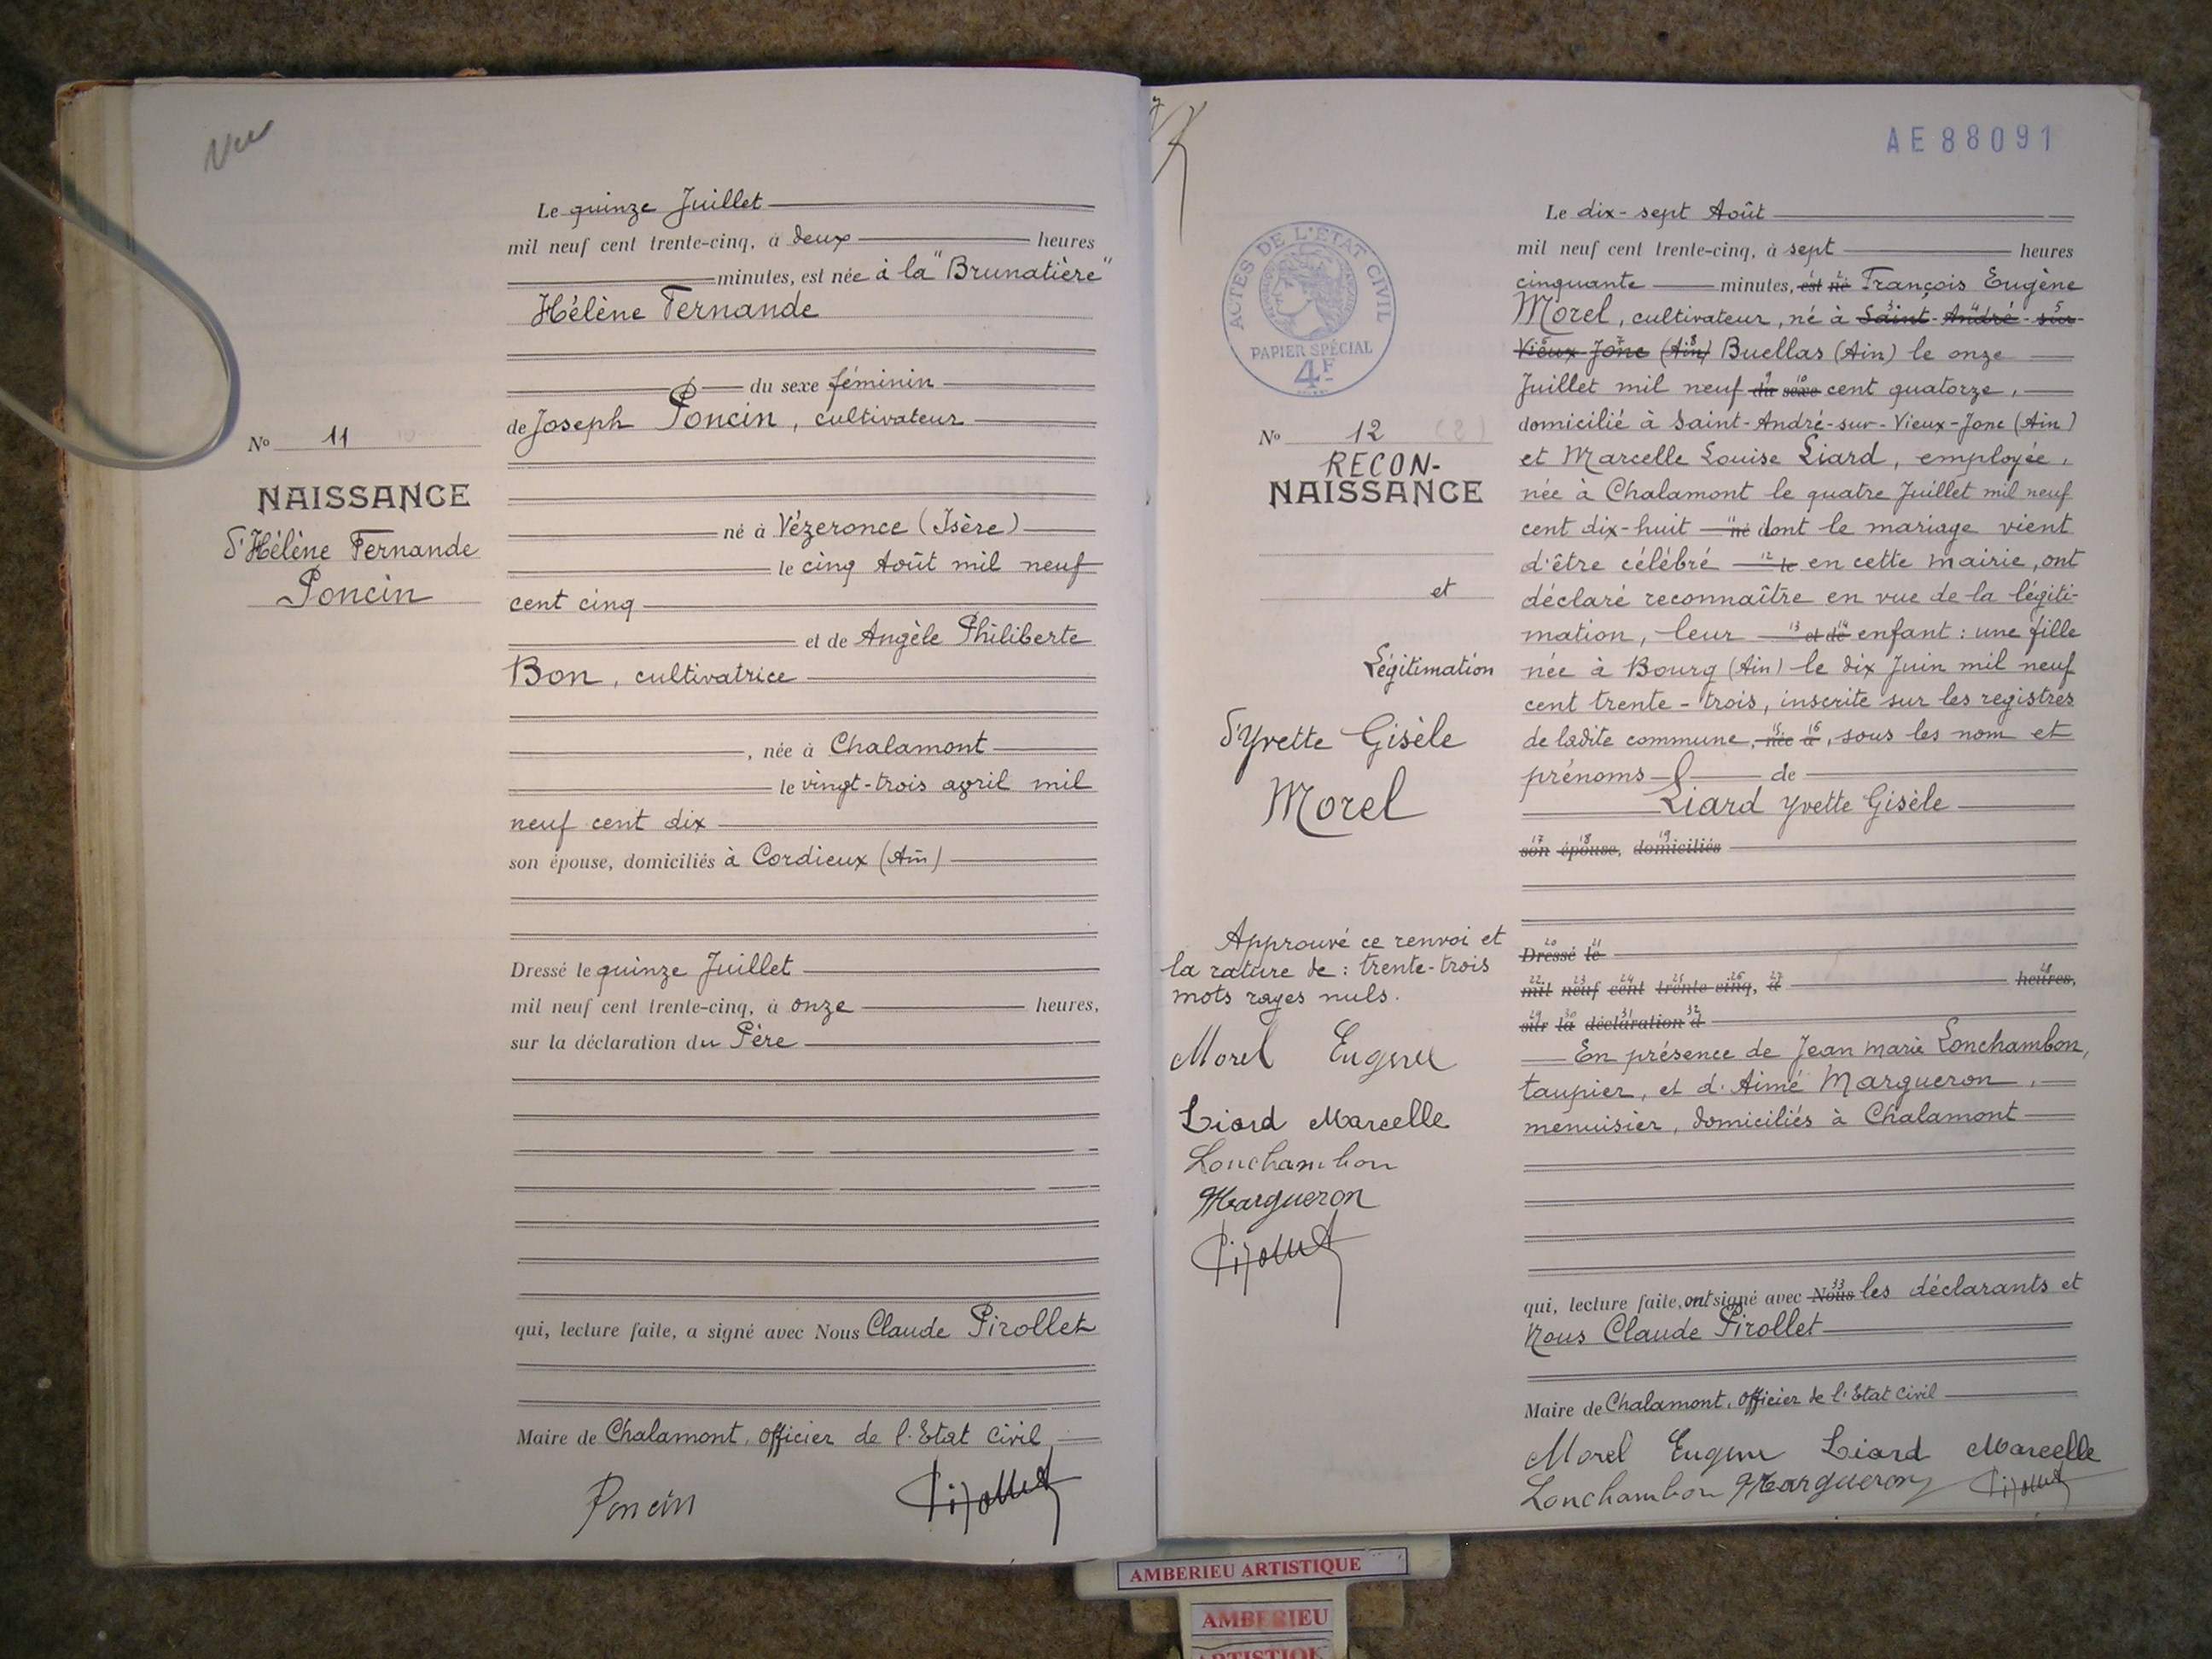 Vu
N° 11
NAISSANCE
d'Hélène Fernande
Poncin
Le quinze Juillet
mil neuf cent trente-cinq, à deux heures
minutes, est née à la "Brunatière"
Hélène Fernande
du sexe féminin
de Joseph Poncin, cultivateur
né à Vézeronce (Isère)
le cinq Août mil neuf
cent cinq
et de Angèle Philiberte
Bon, cultivatrice
, née à Chalamont
le vingt-trois avril mil
neuf cent dix
son épouse, domiciliés à Cordieux (Ain)
Dressé le quinze Juillet
mil neuf cent trente-cinq, à onze heures,
sur la déclaration du Père
qui, lecture faite, a signé avec Nous Claude Pirollet
Maire de Chalamont, Officier de l'Etat Civil
Poncin Pirollet
AE88091
ACTES DE L'ETAT CIVIL
PAPIER SPÉCIAL
4F
N° 12 (8)
RECON-
NAISSANCE
et
Légitimation
d'Yvette Gisèle
Morel
Approuvé ce renvoi et
la rature de : trente-trois
mots rayés nuls.
Morel Eugène
Liard Marcelle
Lonchambon
Margueron
Pirollet
Le dix-sept Août
mil neuf cent trente-cinq, à sept heures
cinquante minutes, est né François Eugène
Morel, cultivateur, né à Saint-André-sur-
Vieux-Jonc (Ain) Buellas (Ain) le onze
Juillet mil neuf du sexe cent quatorze,
domicilié à Saint-André-sur-Vieux-Jonc (Ain)
et Marcelle Louise Liard, employée,
née à Chalamont le quatre Juillet mil neuf
cent dix-huit né dont le mariage vient
d'être célébré le en cette mairie, ont
déclaré reconnaître en vue de la légiti-
mation, leur et de enfant : une fille
née à Bourg (Ain) le dix Juin mil neuf
cent trente-trois, inscrite sur les registres
de ladite commune, née à, sous les nom et
prénoms de
Liard Yvette Gisèle
son épouse, domiciliés
Dressé le
mil neuf cent trente-cinq, à heures,
sur la déclaration d
En présence de Jean Marie Lonchambon,
taupier, et d'Aimé Margueron,
menuisier, domiciliés à Chalamont
qui, lecture faite, ont signé avec Nous les déclarants et
Nous Claude Pirollet
Maire de Chalamont, Officier de l'Etat Civil
Morel Eugène Liard Marcelle
Lonchambon Margueron Pirollet
AMBERIEU ARTISTIQUE
AMBERIEU
ARTISTIQUE